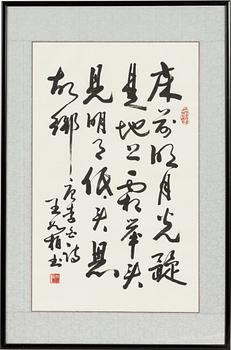 床前明月光疑
是地上霜举头
見明月低头思
故鄉
唐李白诗
王

书